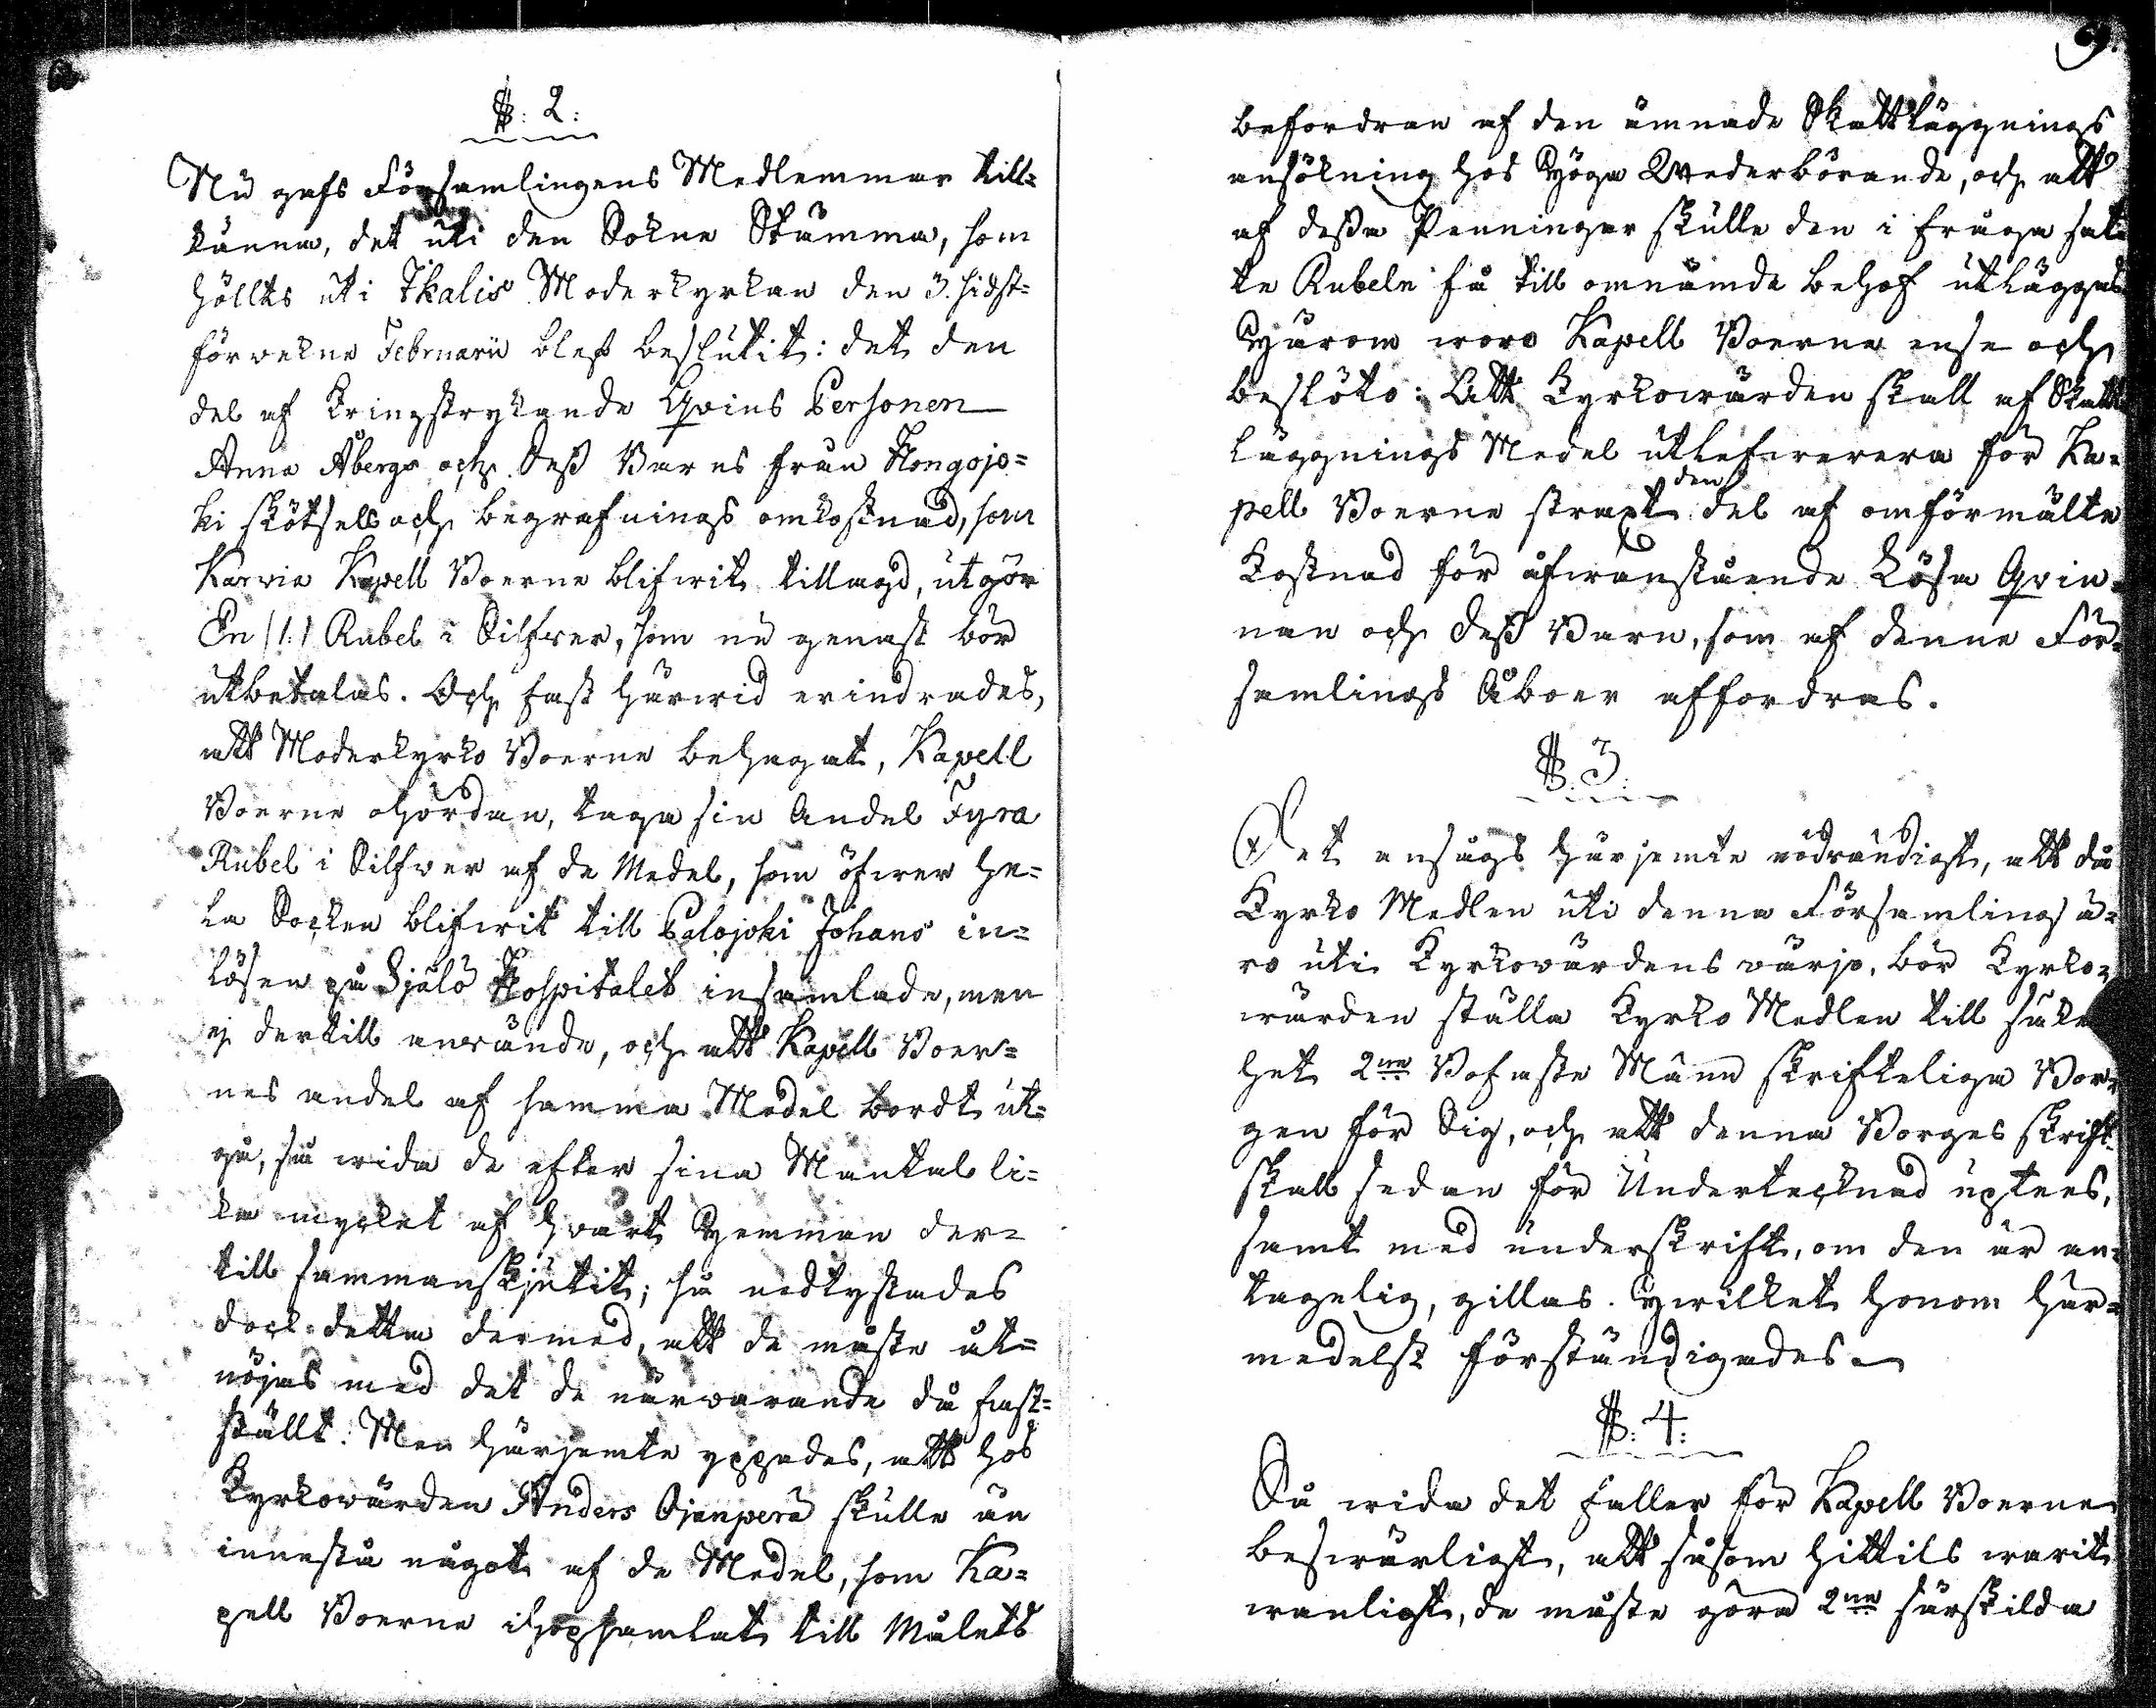 §. 2.
Nu gafs Församlingens Medlemmar till=
känna, det uti den Sokne Stämma, som
hölts uti Ikalis Moderkyrkan den 3. sidst=
förwekne Februarii blef beslutit: det den
del af kringstrykande Qvins Personen
Anna Åbergs och Dess Barns från Kongojo=
ki skötsels och begrafnings omkostnad, som
Karvia Kapell Boerne blifwit tillagd, utgör
En /:1:/ Rubel i Silfwer, som nu genast bör
utbetalas. Och fast härwid erindrades,
att Moderkyrko Boerne behagat, Kapell
Boerne ohördan, taga sin Andel Fyra
Rubel i Silfwer af de Medel, som öfwer he=
la Socken blifwit till Palojoki Johans in=
lösen på Själö Hospitalet insamlade, men
ej dertill anwände, och att Kapell Boer=
nes andel af samma Medel bordt ut=
gå, så wida de efter sina Mantal li=
ka mycket af hwart Hemman der=
till sammanskjutit; så nedtystades
dock detta dermed, att de måste åt=
nöjas med det de närwarande då fast=
ställt. Men härjemte yppades, att hos
Kyrkowärden Anders Ojanperä skulle än
innestå något af de Medel, som Ka=
pell Boerne ihopsamlat till Målets
9.
befordran af den ämnade Skattläggnings
ansökning hos Höga Wederbörande, och att
af dessa Penningar skulle den i fråga sat=
te Rubeln få till omnämde behof utläggas.
Härom woro Kapell Boerne ense och
beslöto: Att Kyrkowärden skall af Skatt
läggnings Medel utlefwerera för Ka=
pell Boerne straxt den del af omförmälte
Kostnad för ofwanstående Lösa Qvin=
nan och dess Barn, som af denne För=
samlings Åboer affordras.
§. 3.
Det ansågs härjemte nödwändigt, att då
Kyrko Medlen uti denna Församling ä=
ro uti Kyrkowärdens wärjo, bör Kyrko=
wärden ställa Kyrko Medlen till säker
het 2ne Bofaste Männ skrifteliga Bor=
gen för Sig, och att denna Borges skrift
skall sedan för Undertecknad uptees,
samt med underskrift, om den är an=
tagelig, gillas. Hwilket honom här=
medelst förständigades.
§. 4.
Så wida det faller för Kapell Boerne
beswärligt, att såsom hittils warit
wanligt, de måste göra 2ne särskilda